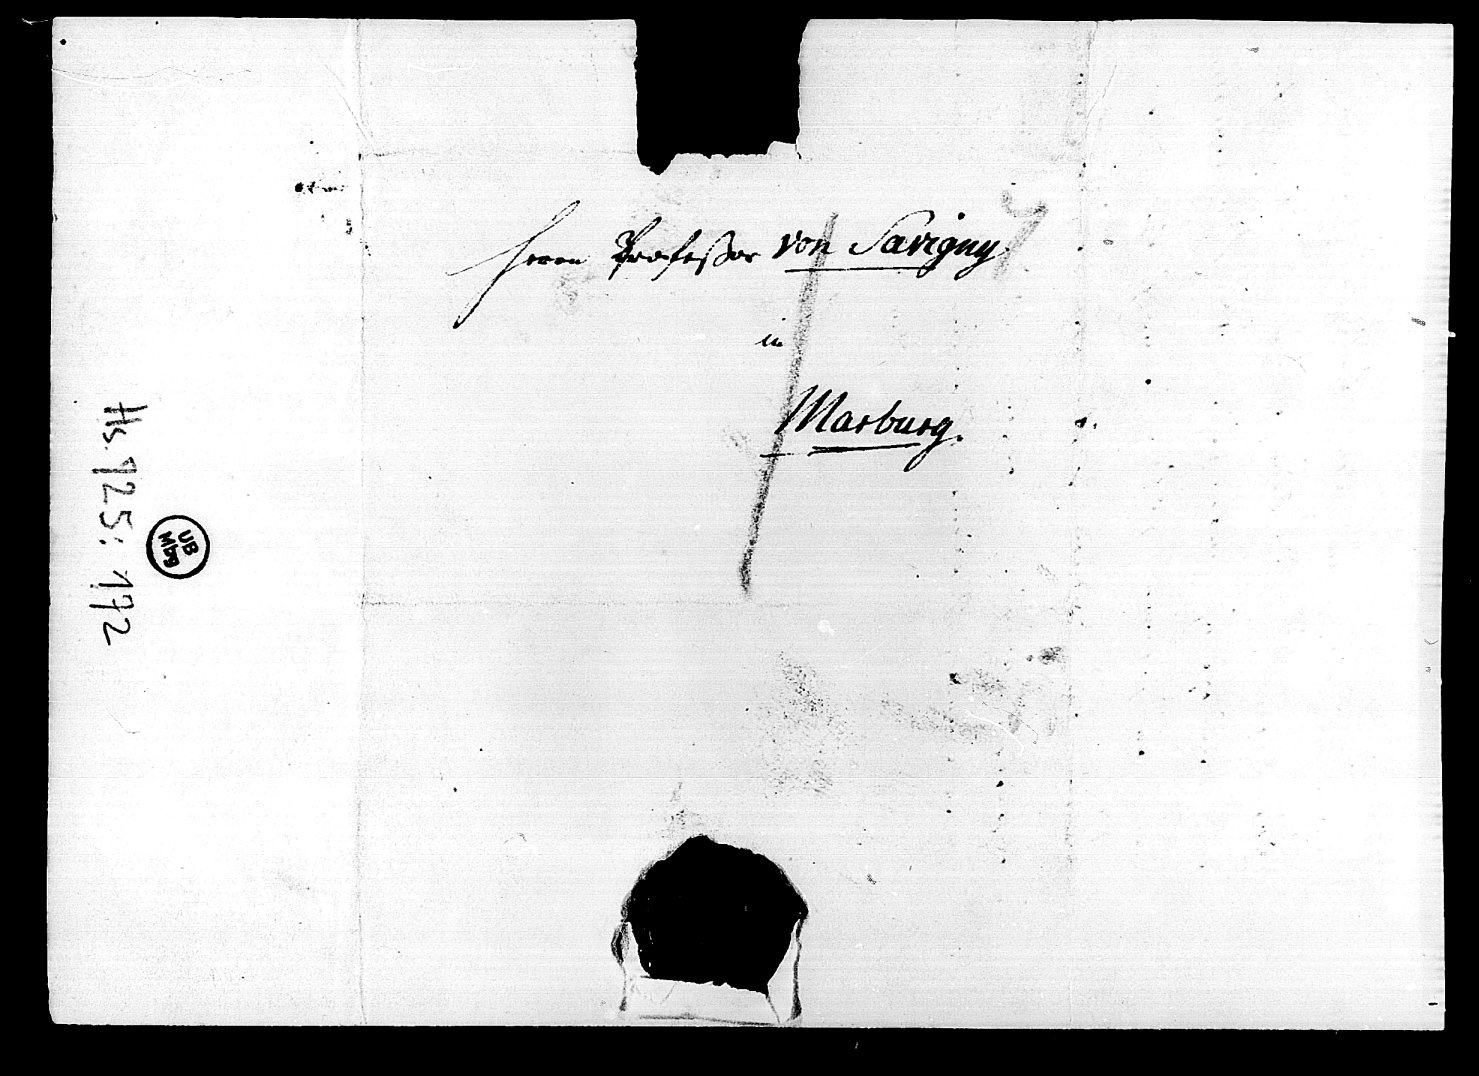 Herrn Professor von Savigny
in
Marburg.
Hs. 725: 172
UB
Mbg